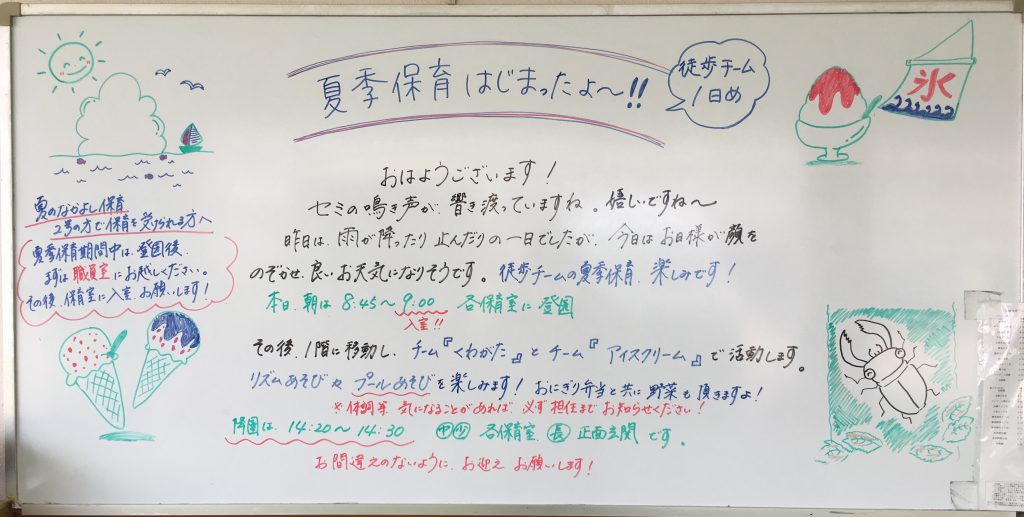 夏季保育はじまったよ〜!!
徒歩チーム
1日め
氷
おはようございます!
セミの鳴き声が、響き渡っていますね。嬉しいですね〜
昨日は、雨が降ったり止んだりの一日でしたが、今日はお日様が顔を
のぞかせ、良いお天気になりそうです。徒歩チームの夏季保育、楽しみです!
本日、朝は8:45〜9:00 各保育室に登園
入室!!
その後、1階に移動し、チーム『くわがた』とチーム『アイスクリーム』で活動します。
リズムあそびやプールあそびを楽しみます! おにぎり弁当と共に野菜も頂きますよ!
※体調等、気になることがあれば、必ず担任までお知らせください!
降園は、14:20〜14:30 中少 各保育室、長 正面玄関です。
お間違えのないように、お迎えお願いします!
夏のなかよし保育
2号の方で保育を受けられる方へ
夏季保育期間中は、登園後、
まずは職員室にお越しください。
その後、保育室に入室、お願いします!